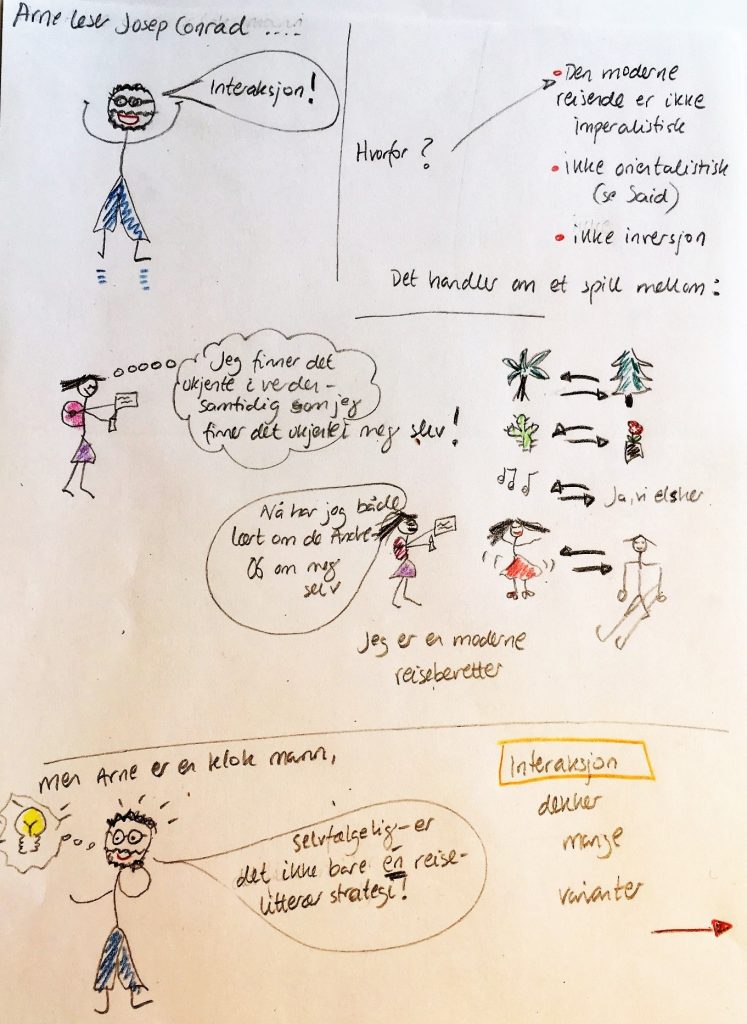 Arne leser Josep Conrad ....
Interaksjon!
Hvorfor?
• Den moderne
reisende er ikke
imperalistisk
• ikke orientalistisk
(se Said)
• ikke inversjon
Det handler om et spill mellom:
Jeg finner det
ukjente i verden -
samtidig som jeg
finner det ukjente i meg selv!
Ja, vi elsker
Nå har jeg både
lært om de Andre -
OG om meg
selv
Jeg er en moderne
reiseberetter
Men Arne er en klok mann,
selvfølgelig - er
det ikke bare én reise-
litterær strategi!
Interaksjon
dekker
mange
varianter